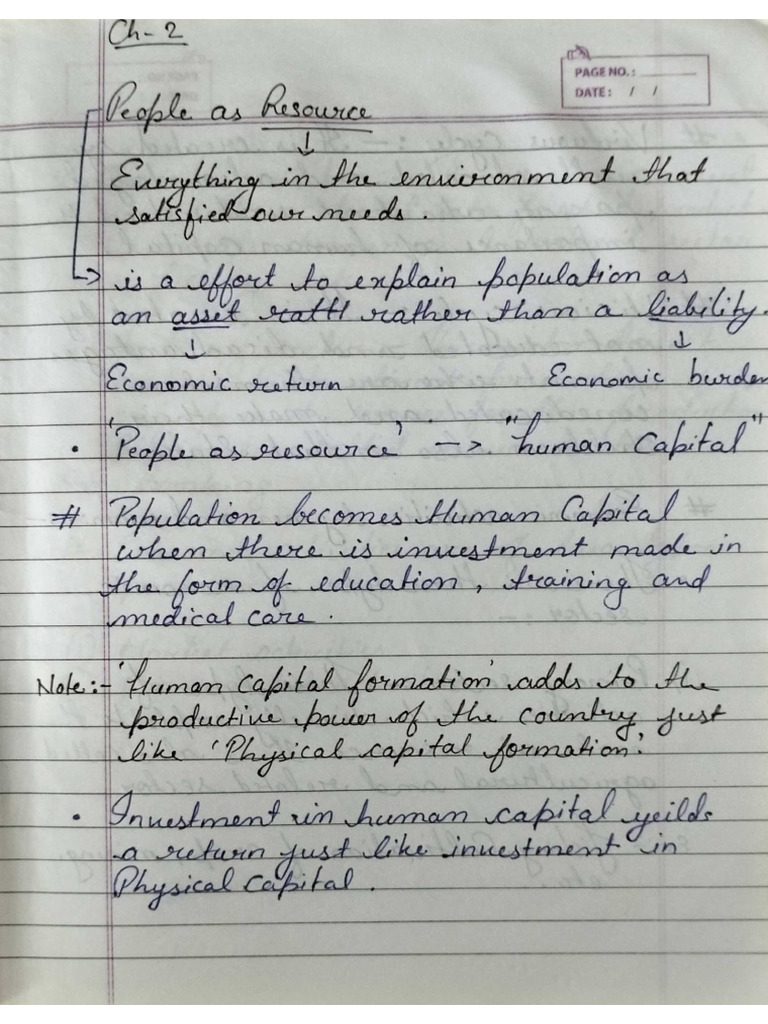 Ch-2
PAGE NO.:
DATE: / /
People as Resource
↓
Everything in the environment that
satisfied our needs.
is a effort to explain population as
an asset ratl rather than a liability.
↓ ↓
Economic return Economic burden
• 'People as resource' -> "human Capital"
# Population becomes Human Capital
when there is investment made in
the form of education, training and
medical care.
Note:- 'Human capital formation' adds to the
productive power of the country just
like 'Physical capital formation.'
• Investment in human capital yeilds
a return just like investment in
Physical Capital.